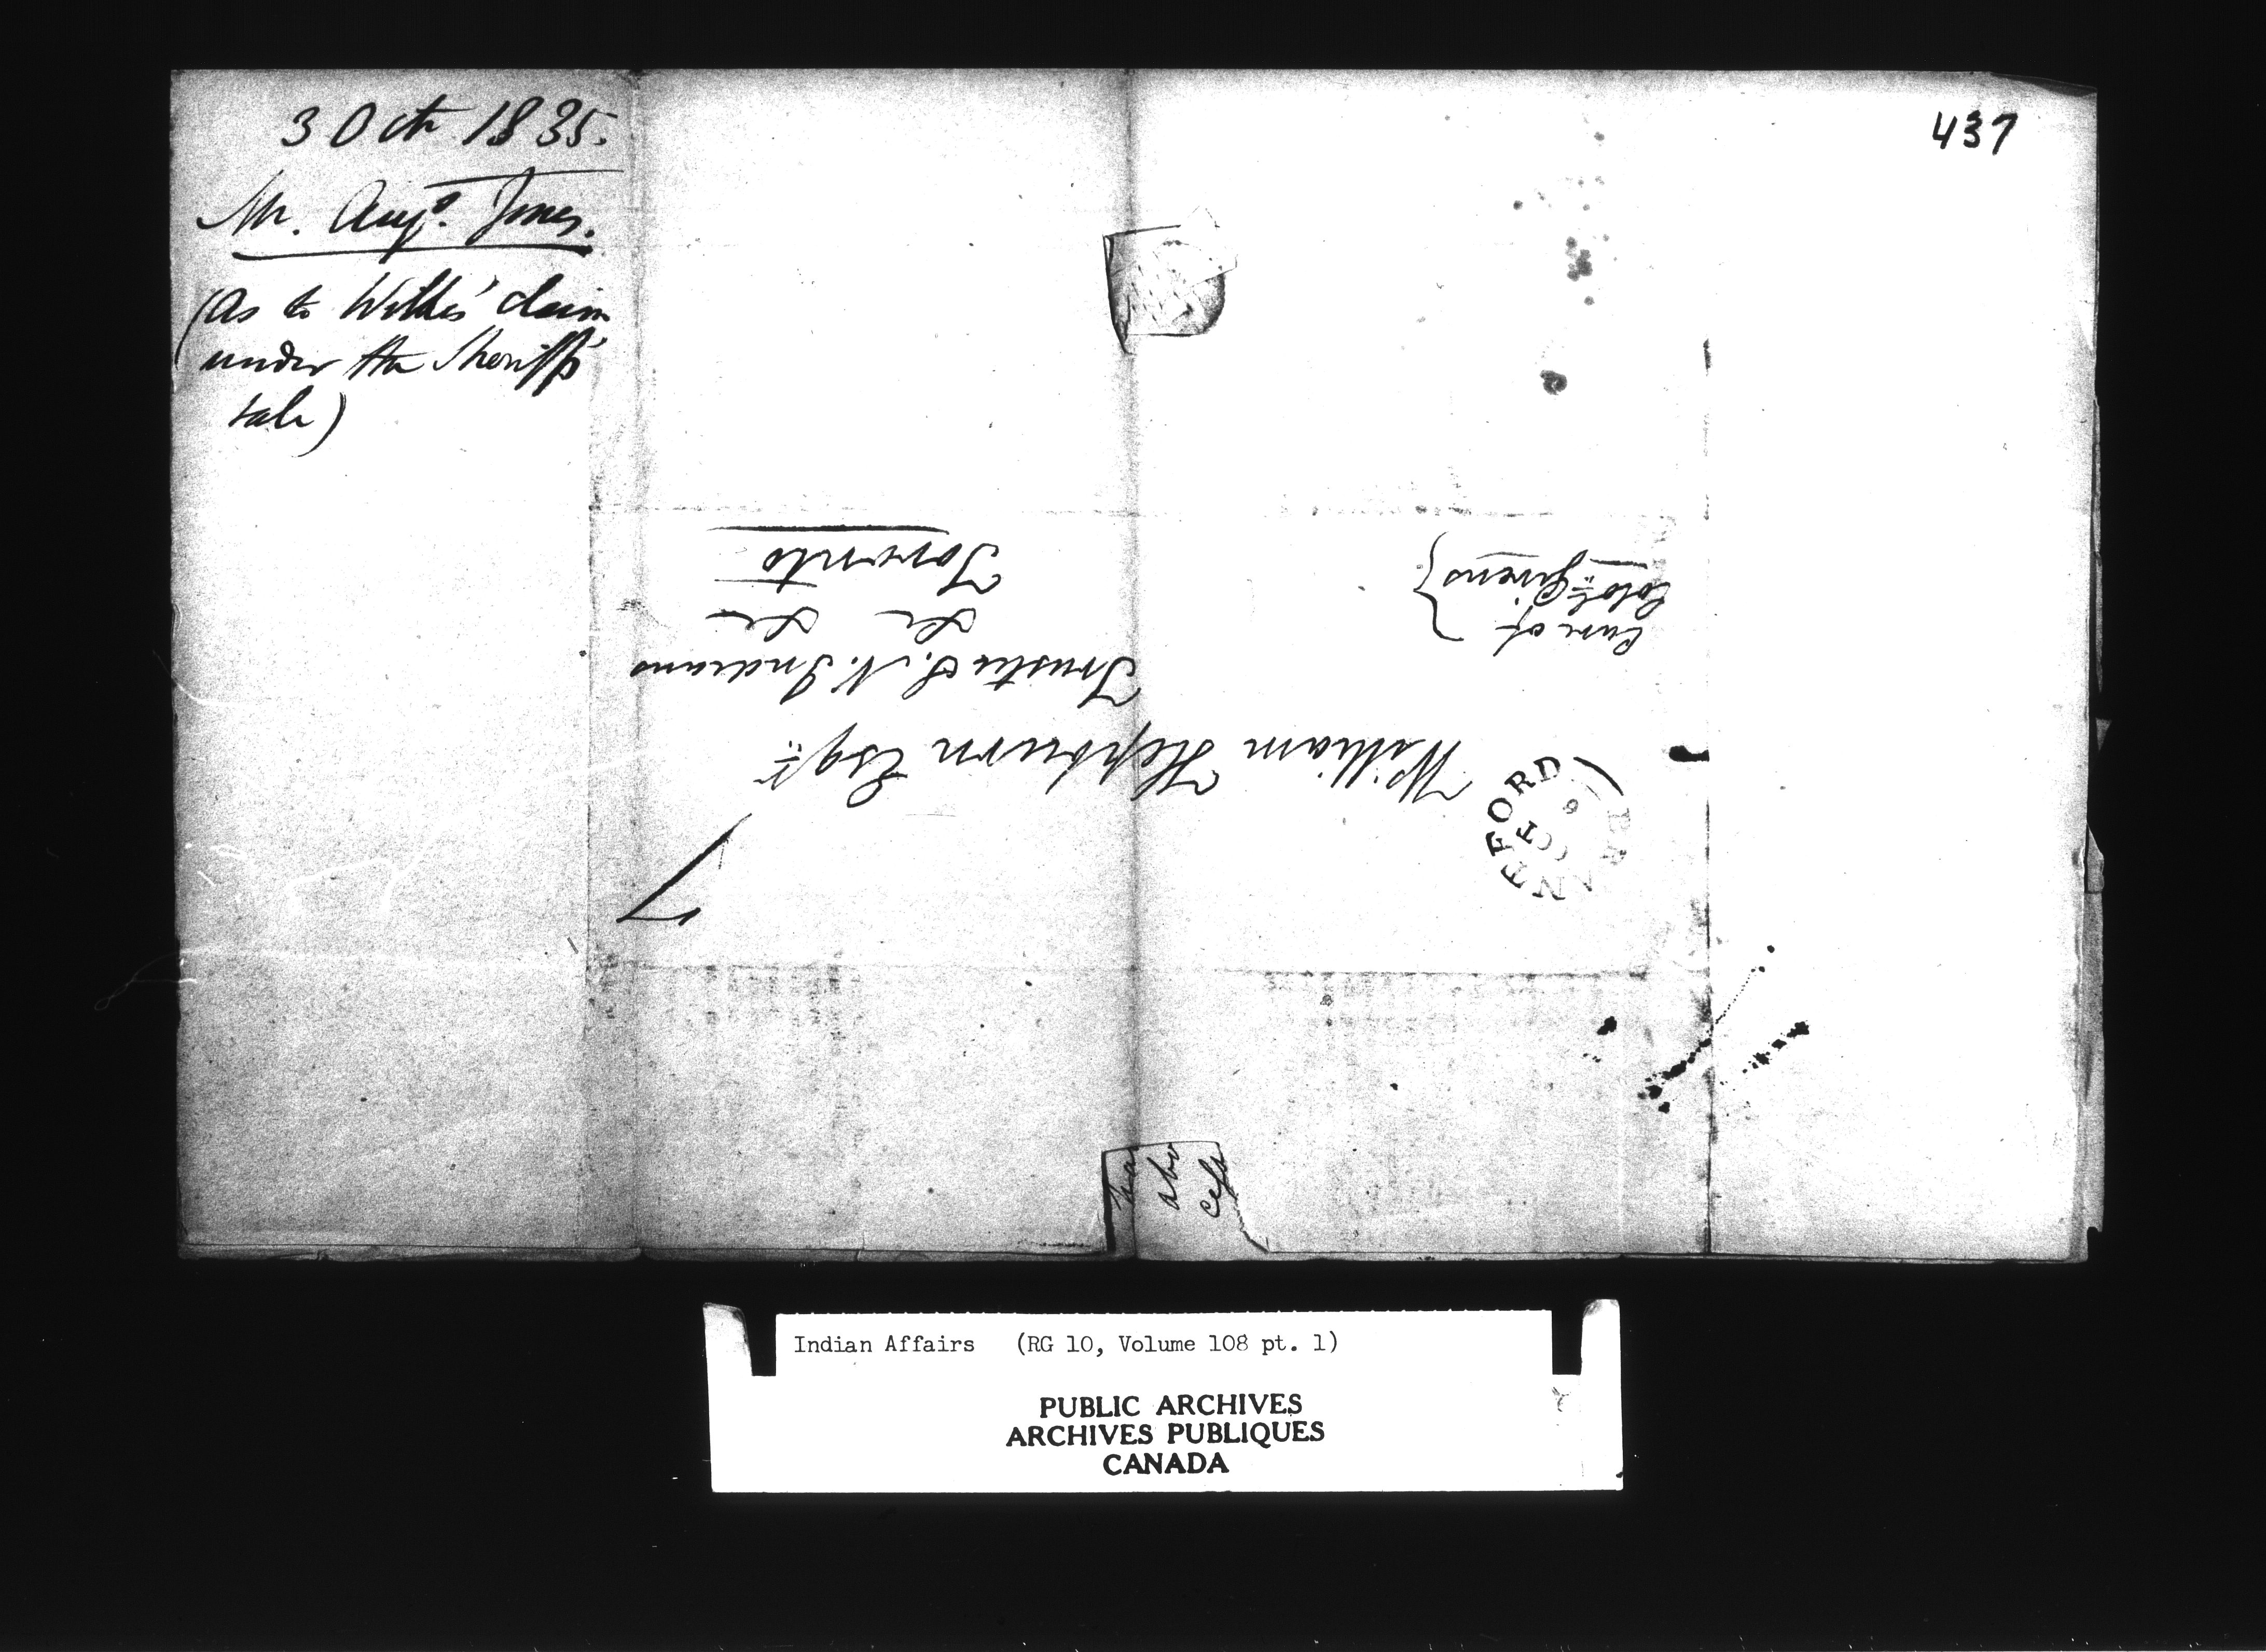 437
3 Octr 1835.
Mr. Augs. Jones.
(As to Wilkes' claim
under the Sheriff's
sale)
William Hepburn Esqr
Trustee S. N. Indians
&c &c
Toronto
Care of
Coln Givens
7
BRANTFORD
OCT 6
Indian Affairs (RG 10, Volume 108 pt. 1)
PUBLIC ARCHIVES
ARCHIVES PUBLIQUES
CANADA